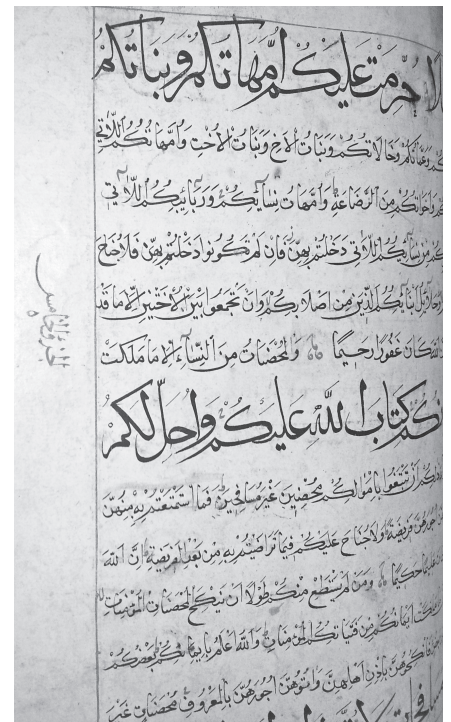 حُرِّمَتْ عَلَيْكُمْ أُمَّهَاتُكُمْ وَبَنَاتُكُمْ
وَعَمَّاتُكُمْ وَخَالَاتُكُمْ وَبَنَاتُ الْأَخِ وَبَنَاتُ الْأُخْتِ وَأُمَّهَاتُكُمُ اللَّاتِي
وَأَخَوَاتُكُمْ مِنَ الرَّضَاعَةِ وَأُمَّهَاتُ نِسَائِكُمْ وَرَبَائِبُكُمُ اللَّاتِي
مِنْ نِسَائِكُمُ اللَّاتِي دَخَلْتُمْ بِهِنَّ فَإِنْ لَمْ تَكُونُوا دَخَلْتُمْ بِهِنَّ فَلَا جُنَاحَ
وَحَلَائِلُ أَبْنَائِكُمُ الَّذِينَ مِنْ أَصْلَابِكُمْ وَأَنْ تَجْمَعُوا بَيْنَ الْأُخْتَيْنِ إِلَّا مَا قَدْ
اللَّهَ كَانَ غَفُورًا رَحِيمًا وَالْمُحْصَنَاتُ مِنَ النِّسَاءِ إِلَّا مَا مَلَكَتْ
كِتَابَ اللَّهِ عَلَيْكُمْ وَأُحِلَّ لَكُمْ
أَنْ تَبْتَغُوا بِأَمْوَالِكُمْ مُحْصِنِينَ غَيْرَ مُسَافِحِينَ فَمَا اسْتَمْتَعْتُمْ بِهِ مِنْهُنَّ
أُجُورَهُنَّ فَرِيضَةً وَلَا جُنَاحَ عَلَيْكُمْ فِيمَا تَرَاضَيْتُمْ بِهِ مِنْ بَعْدِ الْفَرِيضَةِ إِنَّ اللَّهَ
عَلِيمًا حَكِيمًا وَمَنْ لَمْ يَسْتَطِعْ مِنْكُمْ طَوْلًا أَنْ يَنْكِحَ الْمُحْصَنَاتِ الْمُؤْمِنَاتِ
مَلَكَتْ أَيْمَانُكُمْ مِنْ فَتَيَاتِكُمُ الْمُؤْمِنَاتِ وَاللَّهُ أَعْلَمُ بِإِيمَانِكُمْ بَعْضُكُمْ
فَانْكِحُوهُنَّ بِإِذْنِ أَهْلِهِنَّ وَآتُوهُنَّ أُجُورَهُنَّ بِالْمَعْرُوفِ مُحْصَنَاتٍ غَيْرَ
الجزو الخامس